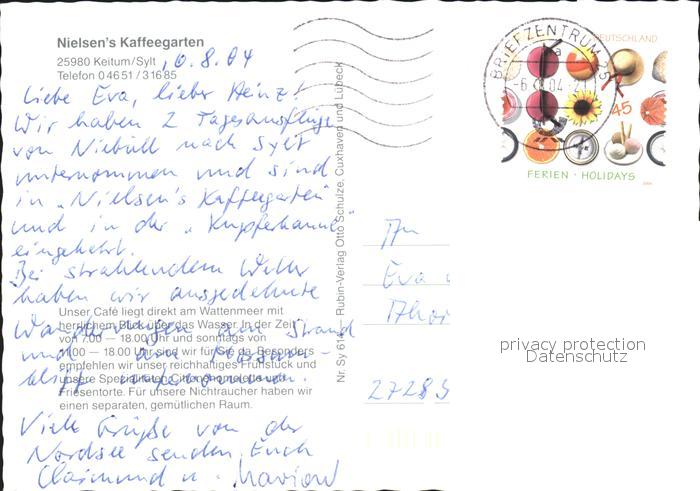 Nielsen's Kaffeegarten
25980 Keitum/Sylt, 6.8.04
Telefon 0 46 51 / 31685
Liebe Eva, lieber Heinz!
Wir haben 2 Tagesausflüge
von Niebüll nach Sylt
unternommen und sind
in "Nielsen's Kaffeegarten"
und in der "Kupferkanne"
eingekehrt.
Bei strahlendem Wetter
haben wir ausgedehnte
Wanderungen am Strand
und am Morsum-
kliff unternommen.
Viele Grüße von der
Nordsee senden Euch
u. Marion
Unser Café liegt direkt am Wattenmeer mit
herrlichem Blick über das Wasser. In der Zeit
von 7.00 — 18.00 Uhr und sonntags von
.00 — 18.00 Uhr sind wir für Sie da. Besonders
empfehlen wir unser reichhaltiges Frühstück und
unsere Spezialitäten,
Friesentorte. Für unsere Nichtraucher haben wir
einen separaten, gemütlichen Raum.
Nr. Sy 61 Rubin-Verlag Otto Schulze, Cuxhaven und Lübeck
BRIEFZENTRUM 25
-6. .04-21
DEUTSCHLAND
45
FERIEN · HOLIDAYS
An
Eva
2728
privacy protection
Datenschutz